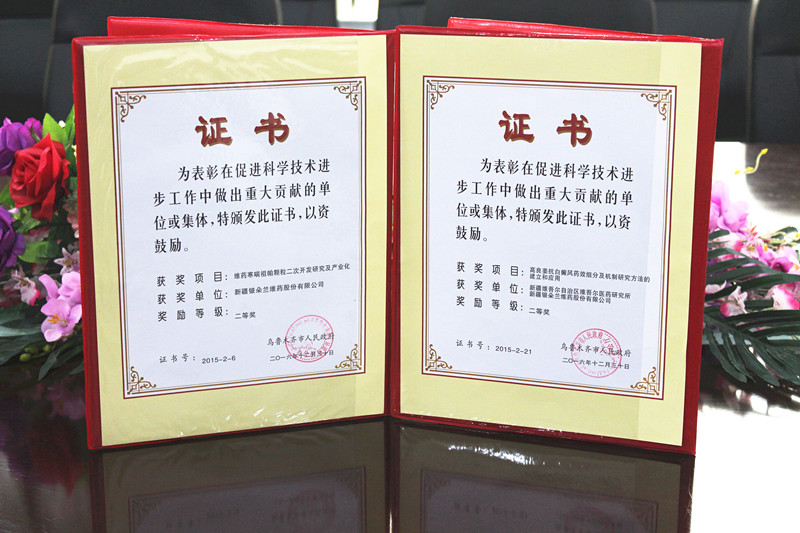 证书
为表彰在促进科学技术进
步工作中做出重大贡献的单
位或集体，特颁发此证书，以资
鼓励。
获奖项目：维药寒喘祖帕颗粒二次开发研究及产业化
获奖单位：新疆银朵兰维药股份有限公司
奖励等级：二等奖
乌鲁木齐市人民政府
证书号：2015-2-6
二〇一六年十二月三十日
证书
为表彰在促进科学技术进
步工作中做出重大贡献的单
位或集体，特颁发此证书，以资
鼓励。
获奖项目：高良姜抗白癜风药效组分及机制研究方法的
建立和应用
获奖单位：新疆维吾尔自治区维吾尔医药研究所
新疆银朵兰维药股份有限公司
奖励等级：二等奖
乌鲁木齐市人民政府
证书号：2015-2-21
二〇一六年十二月三十日